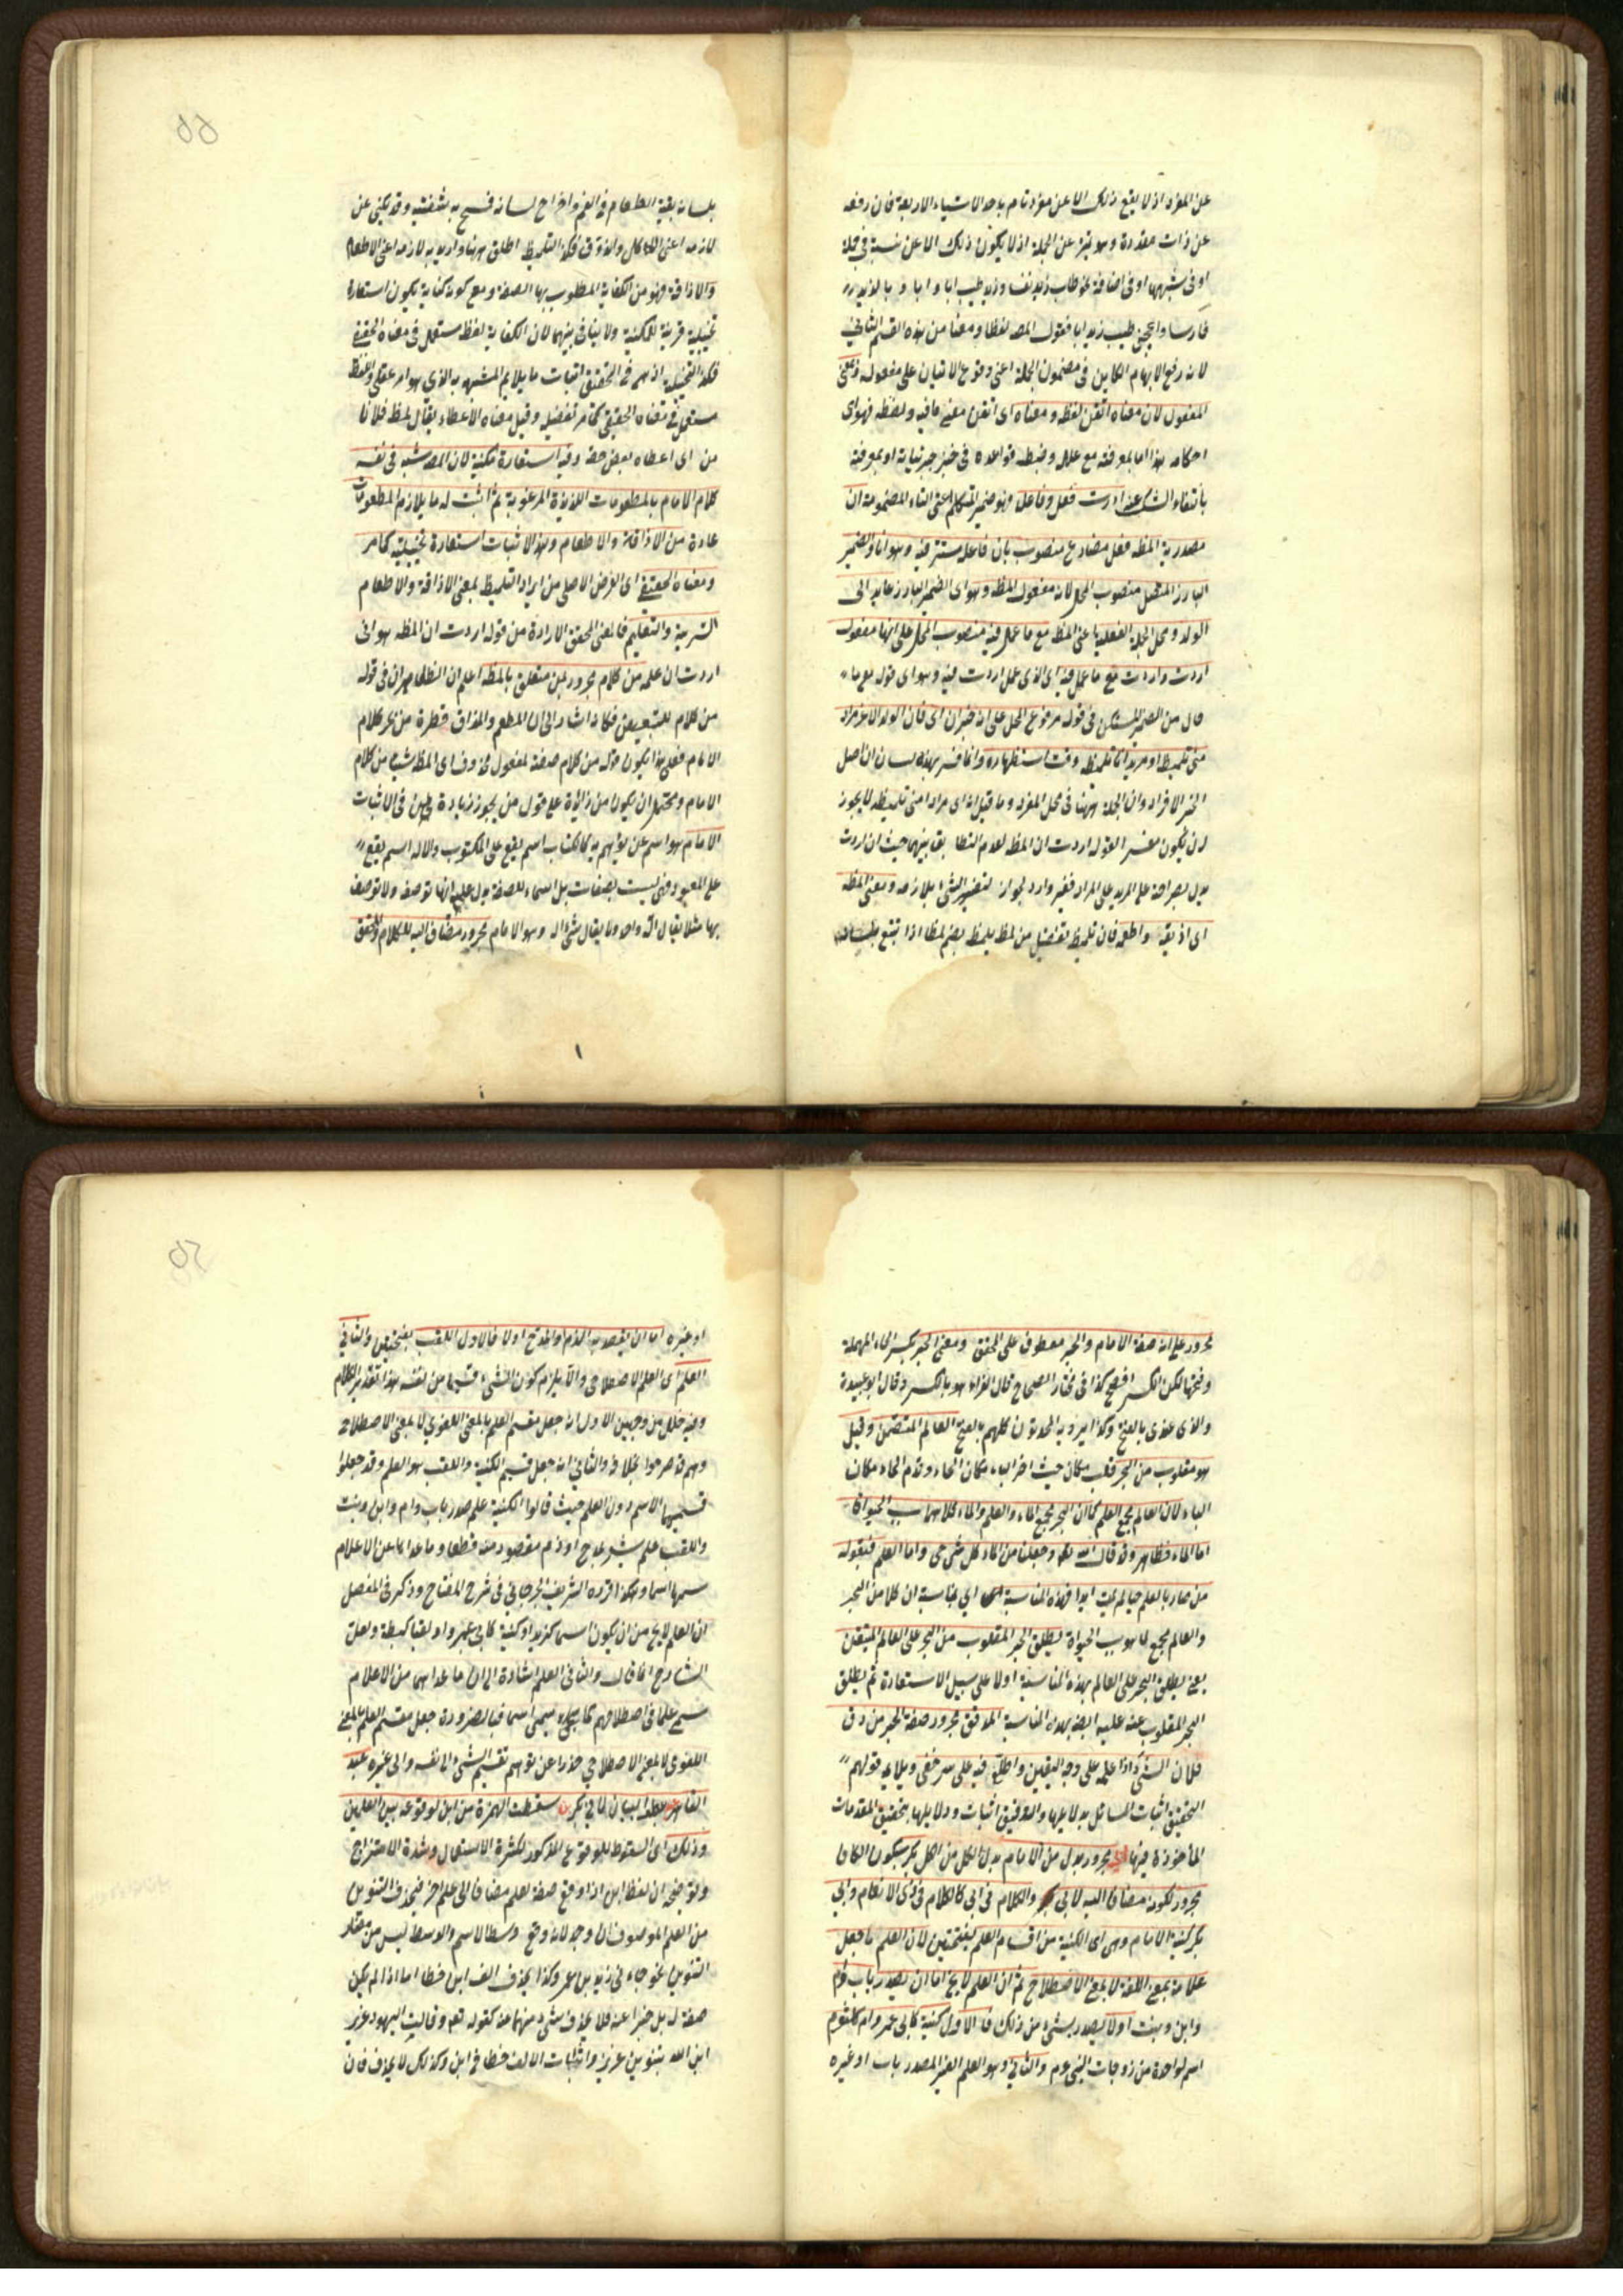 عن المفرد اذ لا يقع ذلك الا عن مفرد تام باحد الاشياء الاربعة فان رفعه
عن ذات مقدرة وهو تميز عن الجملة اذ لا يكون ذلك الا عن نسبة فى جملة
او فى شبهها او فى اضافة نحو طاب زيد نفسا وزيد طيب ابا و ابا و بالزيد
فارسا واعجبنى طيب زيد ابا فقول المصـ لفظا ومعنا من هذه القسم الثانى
لانه رفع الابهام الكاين فى مضمون الجملة اعنى وقوع الاتقان على مفعوله ومعنى
المفعول لان معناه اتقن لفظه ومعناه اى اتقن معنى ما فيه ولفظه فهواى
احكامه بهذا اما بمعرفته مع علل وضبط قواعده فى خبر جزئياته او بمعرفة
بانتفاء الشك عنه اردت فعل وفاعل وهو ضمير المتكلم اعنى التاء المضمومة ان
مصدرية المظه فعل مضارع منصوب بان فاعله مستتر فيه وهو انا والضمير
البارز المتصل منصوب المحل لانه مفعول المظه وهو اى الضمير البارز عايد الى
الولد ومحل الجملة الفعلية اعنى المظه مع ما عمل فيه منصوب المحل على انها مفعول
اردت واردت مع ما عمل فيه اى الذى عمل اردت فيه وهو اى قوله مع ما
حال من الضمير المستكن فى قوله مرفوع المحل على انه خبر ان اى فان الولد الاعز مراد
منى تلميظه او مريد انا تلميظه وقت استظهاره وانما فسر بهذه لبيان ان اصل
الخبر الافراد وان الجملة ههنا فى محل المفرد وما قيل ان اى مراد منى تلميظه لا يجوز
ان يكون مفسر القوله اردت ان المظه لعدم التطابق بينهما حيث ان اردت
يدل بصراحة على المريد على المراد فغير وارد لجواز تفسير الشئ بلازمه ومعنى المظه
اى اذيقه واطعمه فان تلميظ تفعيل من لمظ يلمظ بضم لمظا اذا تتبع بلسانه
بلسانه بقية الطعام فى الفم واخراج لسانه فمسح به شفتيه وقد يكنى عن
لازمه اعنى الاكل والذوق فكذا التلميظ اطلق ههنا واريد به لازمه اعنى الاطعام
والاذاقة فهو من الكناية المطلوب بها الصفة ومع كونه كناية يكون استعارة
تخييلية قرينة للمكنية ولا ينافى بينهما لان الكناية لفظ مستعمل فى معناه الحقيقى
فكذا التخييلية اذ هى فى التحقيق اثبات ما يلايم المشبه به الذى هو امر عقلى واللفظ
مستعمل فى معناه الحقيقى كما مر تفصيله وقيل معناه الاعطاء يقال لمظ فلانا
من اى اعطاه بعض حقه وفيه استعارة مكنية لان المصـ شبه فى نفسه
كلام الامام بالمطعومات اللذيذة المرغوبة ثم اثبت له ما يلازم المطعومات
عادة من الاذاقة والاطعام وهذا الاثبات استعارة تخييلية كما مر
ومعناه الحقيقى اى الغرض الاصلى من ايراد التلميظ بمعنى الاذاقة والاطعام
التربية والتعليم فالمعنى المحقق الارادة من قوله اردت ان المظه هو انى
اردت ان علمه من كلام مجرور بمن متعلق بالمظه اعلم ان الظاهر ان فى قوله
من كلام للتبعيض فكانه اشار الى ان المطعم والمذاق قطرة من بحر كلام
الامام فعلى هذا يكون قوله من كلام صفة لمفعول محذوف اى المظه شيئا من كلام
الامام ومحتمل ان يكون من زائدة على قول من يجوز زيادة من فى الاثبات
الامام هو اسم عن يؤتم به كالكتاب اسم يقع على المكتوب والاله اسم يقع
على المعبود فهى ليست بصفات بل اسماء للصفة يدل عليه انها توصف ولا توصف
بها مثلا يقال اله واحد ولا يقال شئ اله وهو الامام مجرور مضاف اليه للكلام المحقق
مجرور على انه صفة الامام والحبر معطوف على المحقق ومعنى الحبر بكسر الحاء المهملة
وفتحها لكن الكسر افصح كذا فى مختار الصحاح قال الفراء هو بالكسر وقال ابو عبيدة
والذى عندى بالفتح وكذا يرويه المحدثون كلهم بالفتح العالم المتقن وقيل
هو مقلوب من البحر قلب مكان حيث اخر الباء مكان الحاء وقدم الحاء مكان
الباء لان العالم مجمع العلم كما ان البحر مجمع الماء والعلم والماء كلاهما سبب الحيوة
اما الماء فظاهر وقد قال الله تعا وجعلنا من الماء كل شئ حى واما العلم فبقوله
من صار بالعلم حيا لم يمت ابدا فهذه المناسبة اى بمناسبة ان كلا من البحر
والعالم مجمع لما هو سبب الحيوة يطلق الحبر المقلوب من البحر على العالم المتقن
يعنى يطلق البحر على العالم بهذه المناسبة اولا على سبيل الاستعارة ثم يطلق
البحر المقلوب عنه عليه ايضا بهذه المناسبة المدقق مجرور صفة الحبر من دق
فلان الشئ اذا علمه على وجه اليقين واطلع فيه على سر خفى ويلايه قولهم
التحقيق اثبات المسائل بدلايلها والتدقيق اثبات دلايلها بتحقيق المقدمات
المأخوذة فيها ابى مجرور بدل من الامام بدل الكل من الكل بكر بسكون الكاف
مجرور لكونه مضاف اليه لابى والكلام فى ابى كالكلام فى ذى الانعام وابى
بكر كنية الامام وهى اى الكنية من اقسام العلم بفتحتين لان العلم ما جعل
علامة بمعنى اللغة لا بمعنى الاصطلاح ثم ان العلم لا يخ اما ان يصدر باب وام
وابن وبنت اولا يصدر بشئ من ذلك فالاول كنية كابى عمرو وام كلثوم
اسم لواحدة من زوجات النبى عم والثانى وهو العلم الغير المصدر باب او غيره
او غيره اما ان يقصد به الذم والمدح اولا فالاول اللقب بفتحتين والثانى
العلم اى العلم الاصطلاحى والا يلزم كون الشئ قسيما من نفسه هذا تقدير الكلام
وفيه خلل من وجهين الاول انه جعل مقسم العلم بالمعنى اللغوى لا بمعنى الاصطلاح
وهم قد صرحوا بخلافه والثانى انه جعل قسيم الكنية واللقب هو العلم وقد جعلوا
قسيمهما الاسم دون العلم حيث قالوا الكنية علم صدر باب وام وابن وبنت
واللقب علم يشعر بمدح او ذم مقصود منه قطعا وما عداهما من الاعلام
سمى اسما وهكذا قرره الشريف الجرجانى فى شرح المفتاح وذكر فى المفصل
ان العلم لا يخ من ان يكون اسما كزيد او كنية كابى عمرو او لقبا كبطة ولعل
الشارح انما قال والثانى العلم اشارة الى ان ما عداهما من الاعلام
سمى علما فى اصطلاحهم كما سمى اسما فبالضرورة جعل مقسم العلم بالمعنى
اللغوى لا بمعنى الاصطلاحى حذرا عن توهم تقسيم الشئ الى نفسه والى غيره عبد
القاهر عطف البيان لابى بكر بن سقطت الهمزة من ابن لوقوعه بين العلمين
وذلك اى السقوط للوقوع المذكور لكثرة الاستعمال وشدة الامتزاج
وتوضيحه ان لفظ ابن اذا وقع صفة لعلم مضافا الى علم اخر فيحذف التنوين
من العلم الموصوف لانه وقع وسط الاسم والوسط ليس من مقار
التنوين نحو جاءنى زيد بن عمرو وكذا يحذف الف ابن خطا اما اذا لم يكن
صفة له بل خبرا عنه فلا يحذف شئ منهما عنه كقوله تعم وقالت اليهود عزير
ابن الله بتنوين عزير واثبات الالف خطا فى ابن وكذلك لا يحذف فان